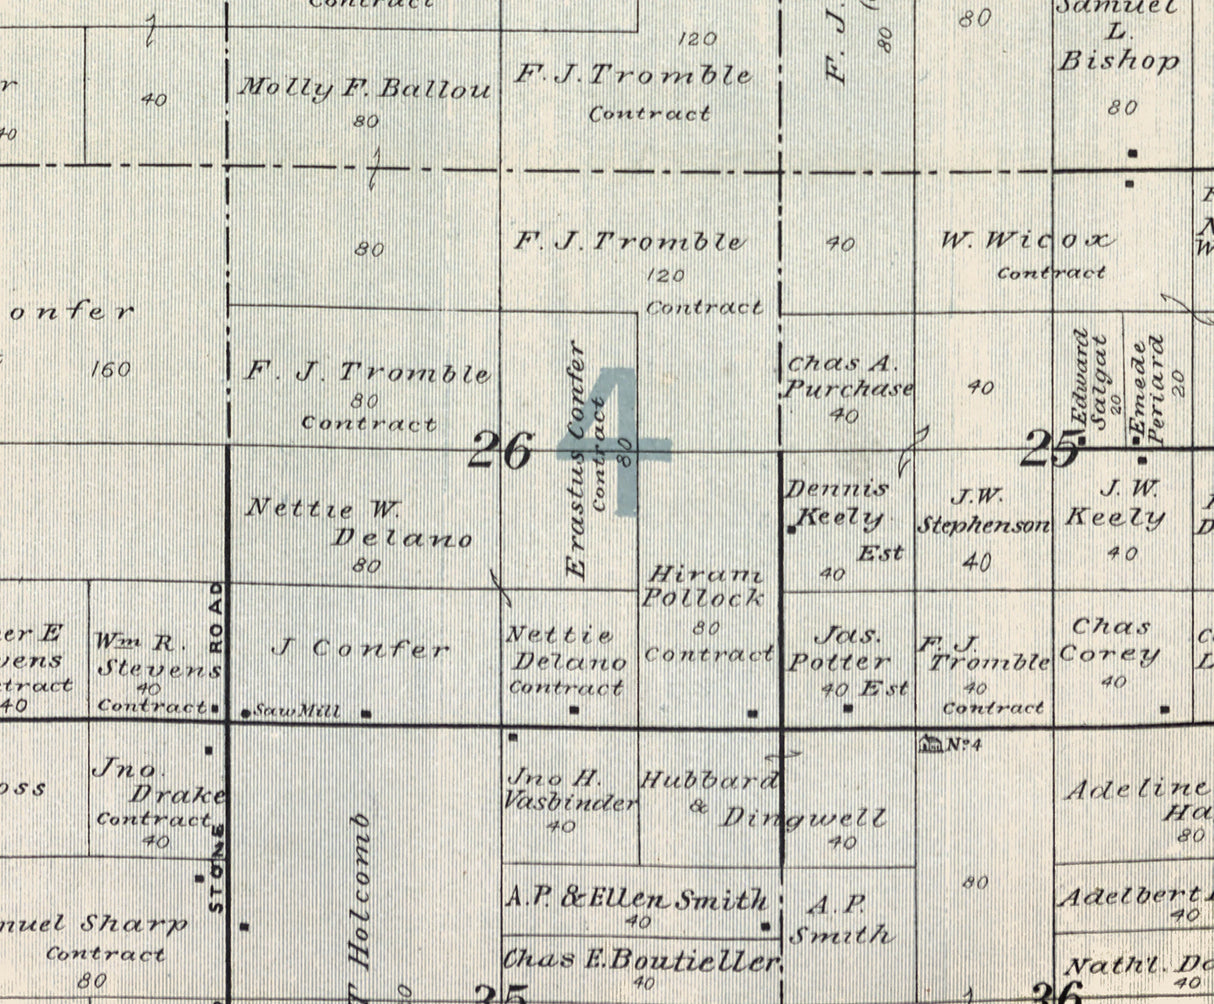 Contract
120
80
Samuel
L.
Bishop
80
F. J.
80
40
Molly F. Ballou
80
F. J. Tromble
Contract
40
80
F. J. Tromble
120
Contract
40
W. Wicox
Contract
onfer
160
F. J. Tromble
80
Contract
Erastus Confer
Contract
80
4
Chas A.
Purchase
40
40
Edward
Salgat
20
Emede
Periard
20
26
25
Nettie W.
Delano
80
Dennis
Keely
Est
40
J.W.
Stephenson
40
J. W.
Keely
40
Hiram
Pollock
80
Contract
er E
vens
tract
40
Wm R.
Stevens
40
Contract
STONE ROAD
J Confer
Saw Mill
Nettie
Delano
Contract
Jas.
Potter
40 Est
F. J.
Tromble
40
Contract
Chas
Corey
40
oss
Jno.
Drake
Contract
40
T Holcomb
Jno H.
Vasbinder
40
Hubbard
&
Dingwell
40
No 4
80
Adeline
Ha
80
nuel Sharp
Contract
80
A.P. & Ellen Smith
40
A. P.
Smith
Adelbert
40
Chas E. Boutieller
40
Nath'l. Do
40
35
36